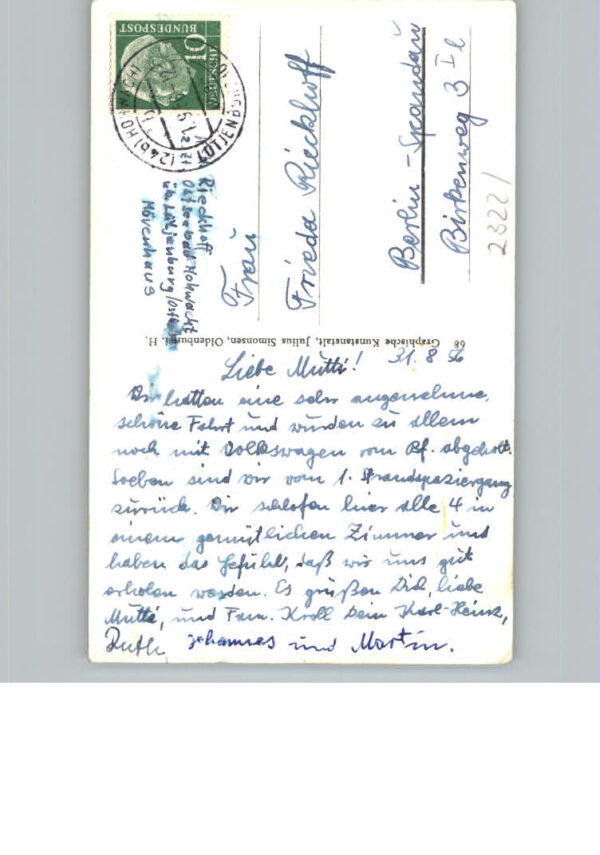 10
DEUTSCHE
BUNDESPOST
(24b) HOHWACHT
LÜTJENBURG
Rieckhoff
Ostseebad Hohwacht
üb. Lütjenburg/Osth
Mövenhaus
Frau
Frieda Rieckhoff
Berlin-Spandau
Birkenweg 3 I l
23221
68 Graphische Kunstanstalt, Julius Simonsen, Oldenburg i. H.
31.8.56
Liebe Mutti!
Wir hatten eine sehr angenehme,
schöne Fahrt und wurden zu allem
noch mit Volkswagen vom Bf. abgeholt.
Soeben sind wir vom 1. Strandspaziergang
zurück. Wir schlafen hier alle 4 in
einem gemütlichen Zimmer und
haben das Gefühl, daß wir uns gut
erholen werden. Es grüßen Dich, liebe
Mutti, und Fam. Kroll Dein Karl-Heinz,
Ruth Johannes und Martin.